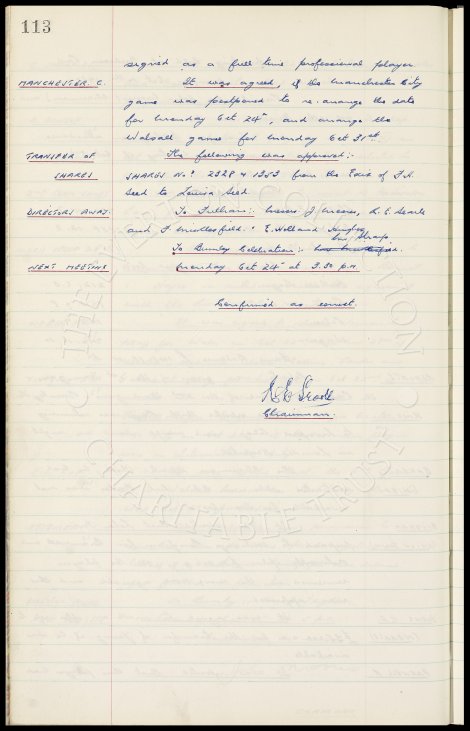 113
signed as a full time professional player.
MANCHESTER C. It was agreed, if the Manchester City
game was postponed to re-arrange the date
for Monday Oct 24th, and arrange the
Walsall game for Monday Oct 31st.
TRANSFER OF The following was approved:-
SHARES SHARES Nos 2028 & 1353 from the Exors of T.H.
Seed to Louisa Seed.
DIRECTORS AWAY. To Fulham:- Messrs J. Mears, R. E. Searle
and F. Middlefield. E. Holland Hughes
Mr. Sharp.
To Burnley Celebration:-
NEXT MEETING Monday Oct 24th at 3.30 p.m.
Confirmed as correct.
Chairman.
THE
CHARITABLE TRUST